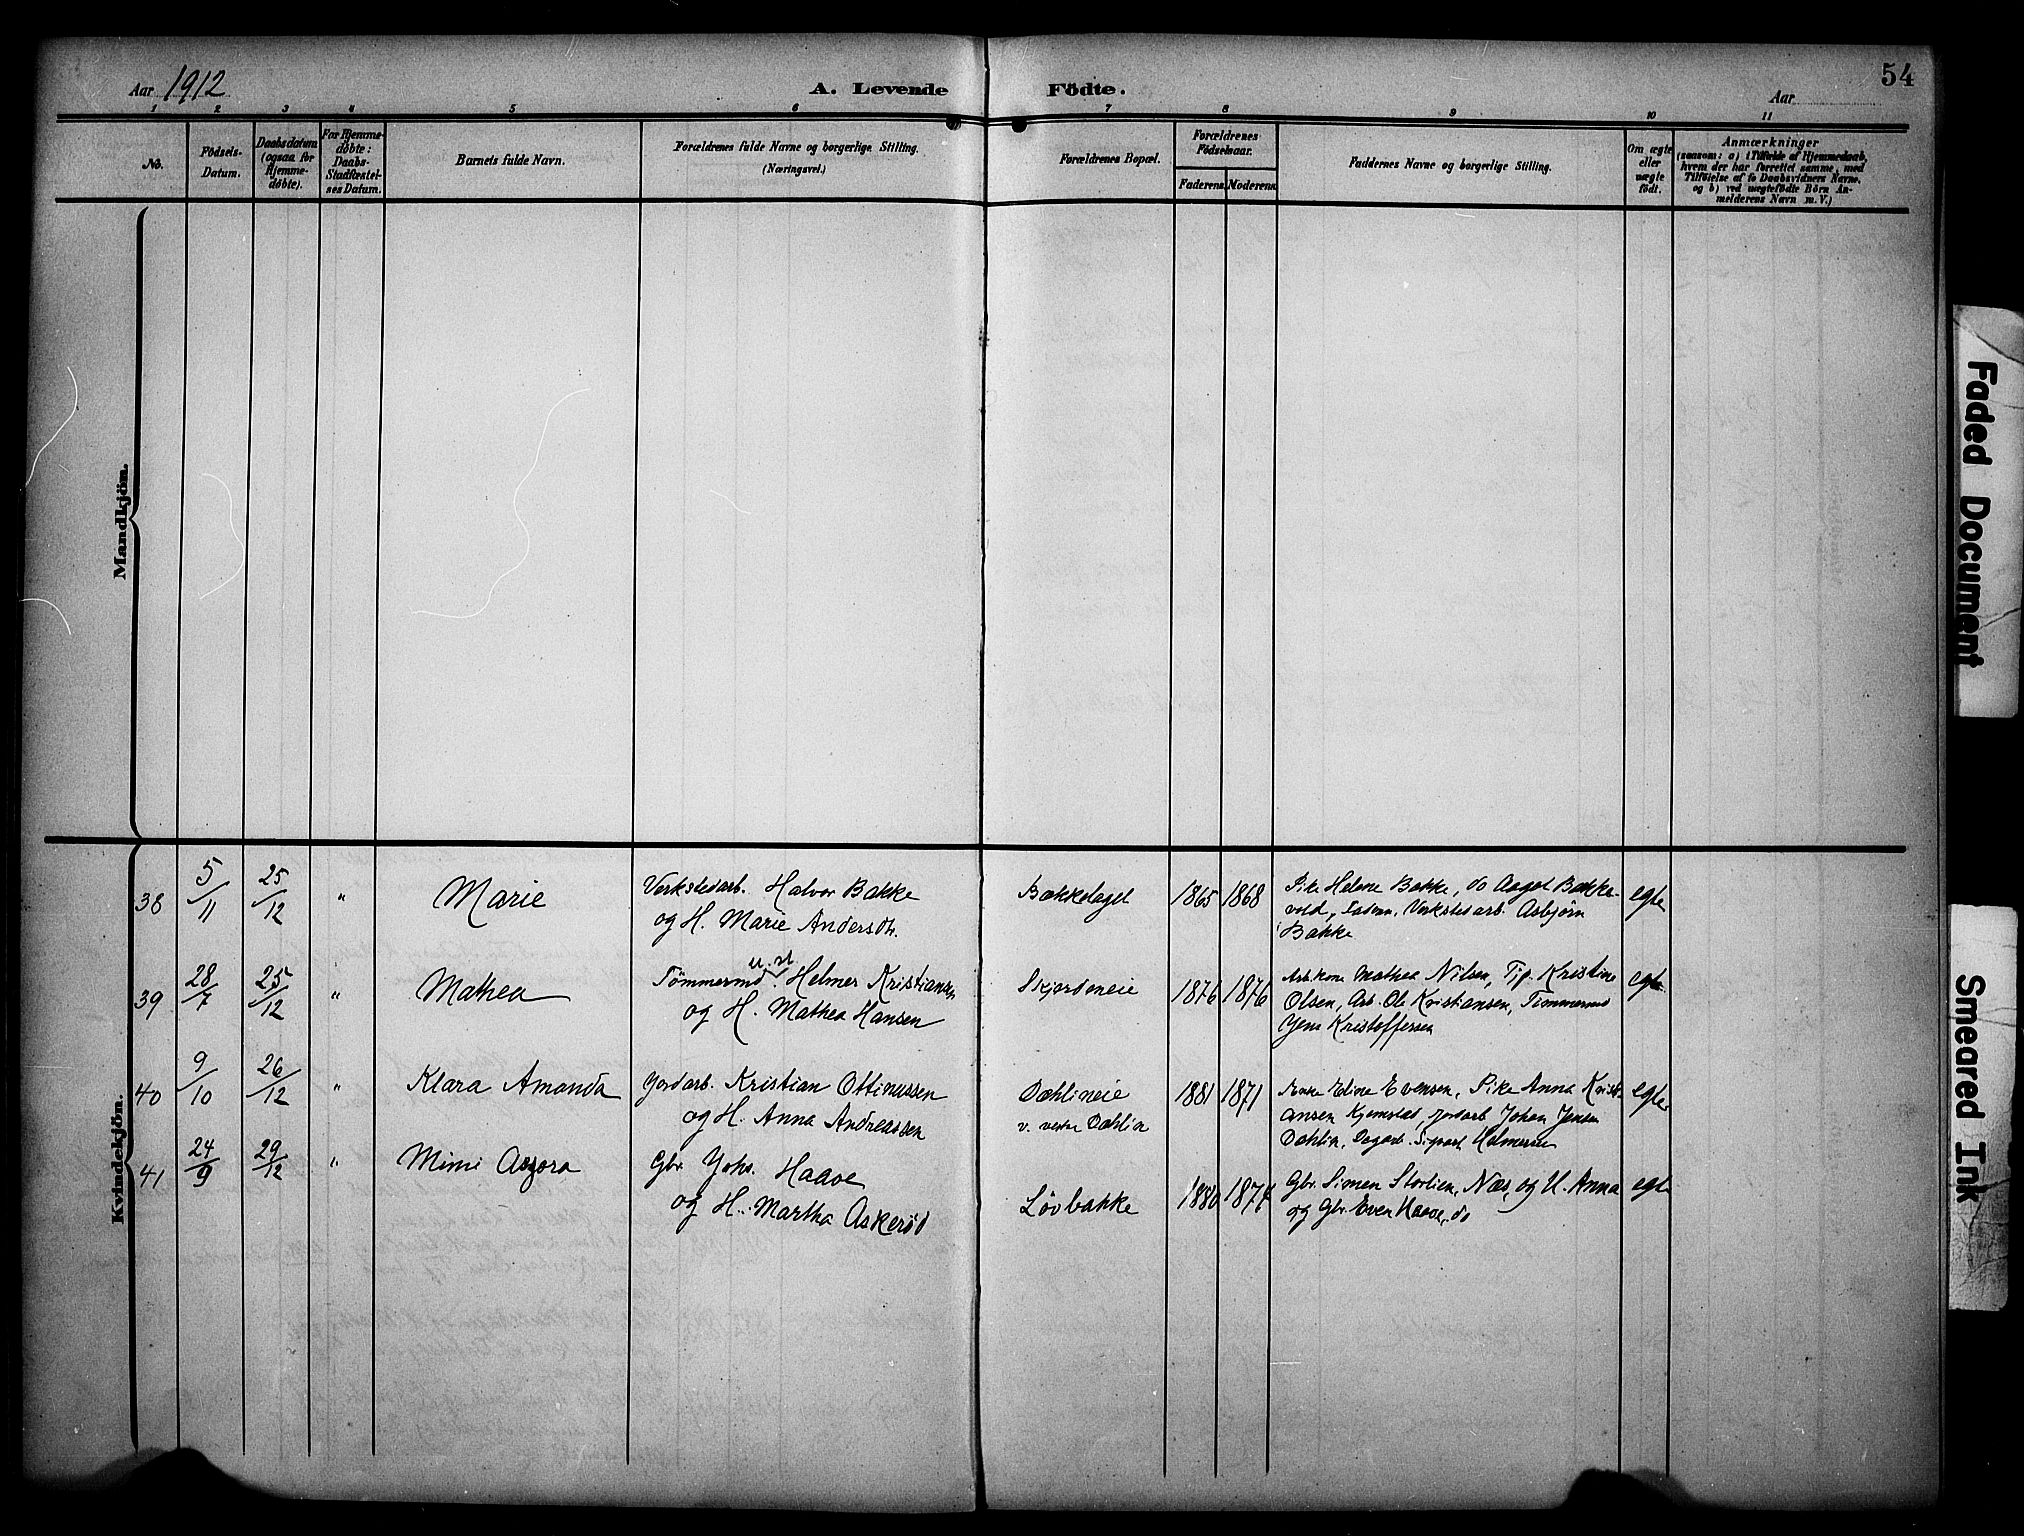 54
Aar 1912
A. Levende Födte.
Aar
1 2 3 4 5 6 7 8 9 10 11
No.
Födsels-
Datum.
Daabsdatum
(ogsaa for
Hjemme-
döbte).
For Hjemme-
döbte:
Daabs-
Stadfæstel-
ses Datum.
Barnets fulde Navn.
Forældrenes fulde Navne og borgerlige Stilling.
(Næringsvei.)
Forældrenes Bopæl.
Forældrenes
Födselsaar.
Faderens. Moderens.
Faddernes Navne og borgerlige Stilling.
Om ægte
eller
uægte
födt.
Anmærkninger
(saasom: a) i Tilfælde af Hjemmedaab,
hvem der har forrettet samme, med
Tilföielse af to Daabsvidners Navne,
og b) ved uægtefödte Börn An-
melderens Navn m. V.)
Mandkjön.
Kvindekjön.
38 5/11 25/12 " Marie
Verkstedarb. Halvor Bakke
og H. Marie Andersdtr.
Bækkelaget 1865 1868
Pike Helene Bakke, do Aagot Bakke-
vold, Verkstedarb. Asbjørn
Bakke
egte
39 28/7 25/12 " Mathea
Tømmermd. Helmer Kristiansen
og H. Mathea Hansen
Skjerdeneie 1876 1876
Arb.kone Mathea Nilsen, Tjp. Kristine
Olsen, Arb. Ole Kristiansen, Tømmermd
Jens Kristoffersen
egte
40 9/10 26/12 " Klara Amanda
Jordarb. Kristian Ottinussen
og H. Anna Andreassen
Dæhlineie
v. vestre Dæhlin
1881 1871
Enke Edine Evensen, Pike Anna Kristi-
ansen Kjemstad, jordarb Johan Jensen
Dæhlin, Dagarb. Sigvart Helmersen
egte
41 24/9 29/12 " Mimi Aszora
Gbr. Johs. Haave
og H. Martha Askerød
Løvbakke 1880 1876
Gbr. Simen Storlien, Næs, og H. Anna
og Gbr. Even Haave, do
egte
Faded Document
Smeared Ink